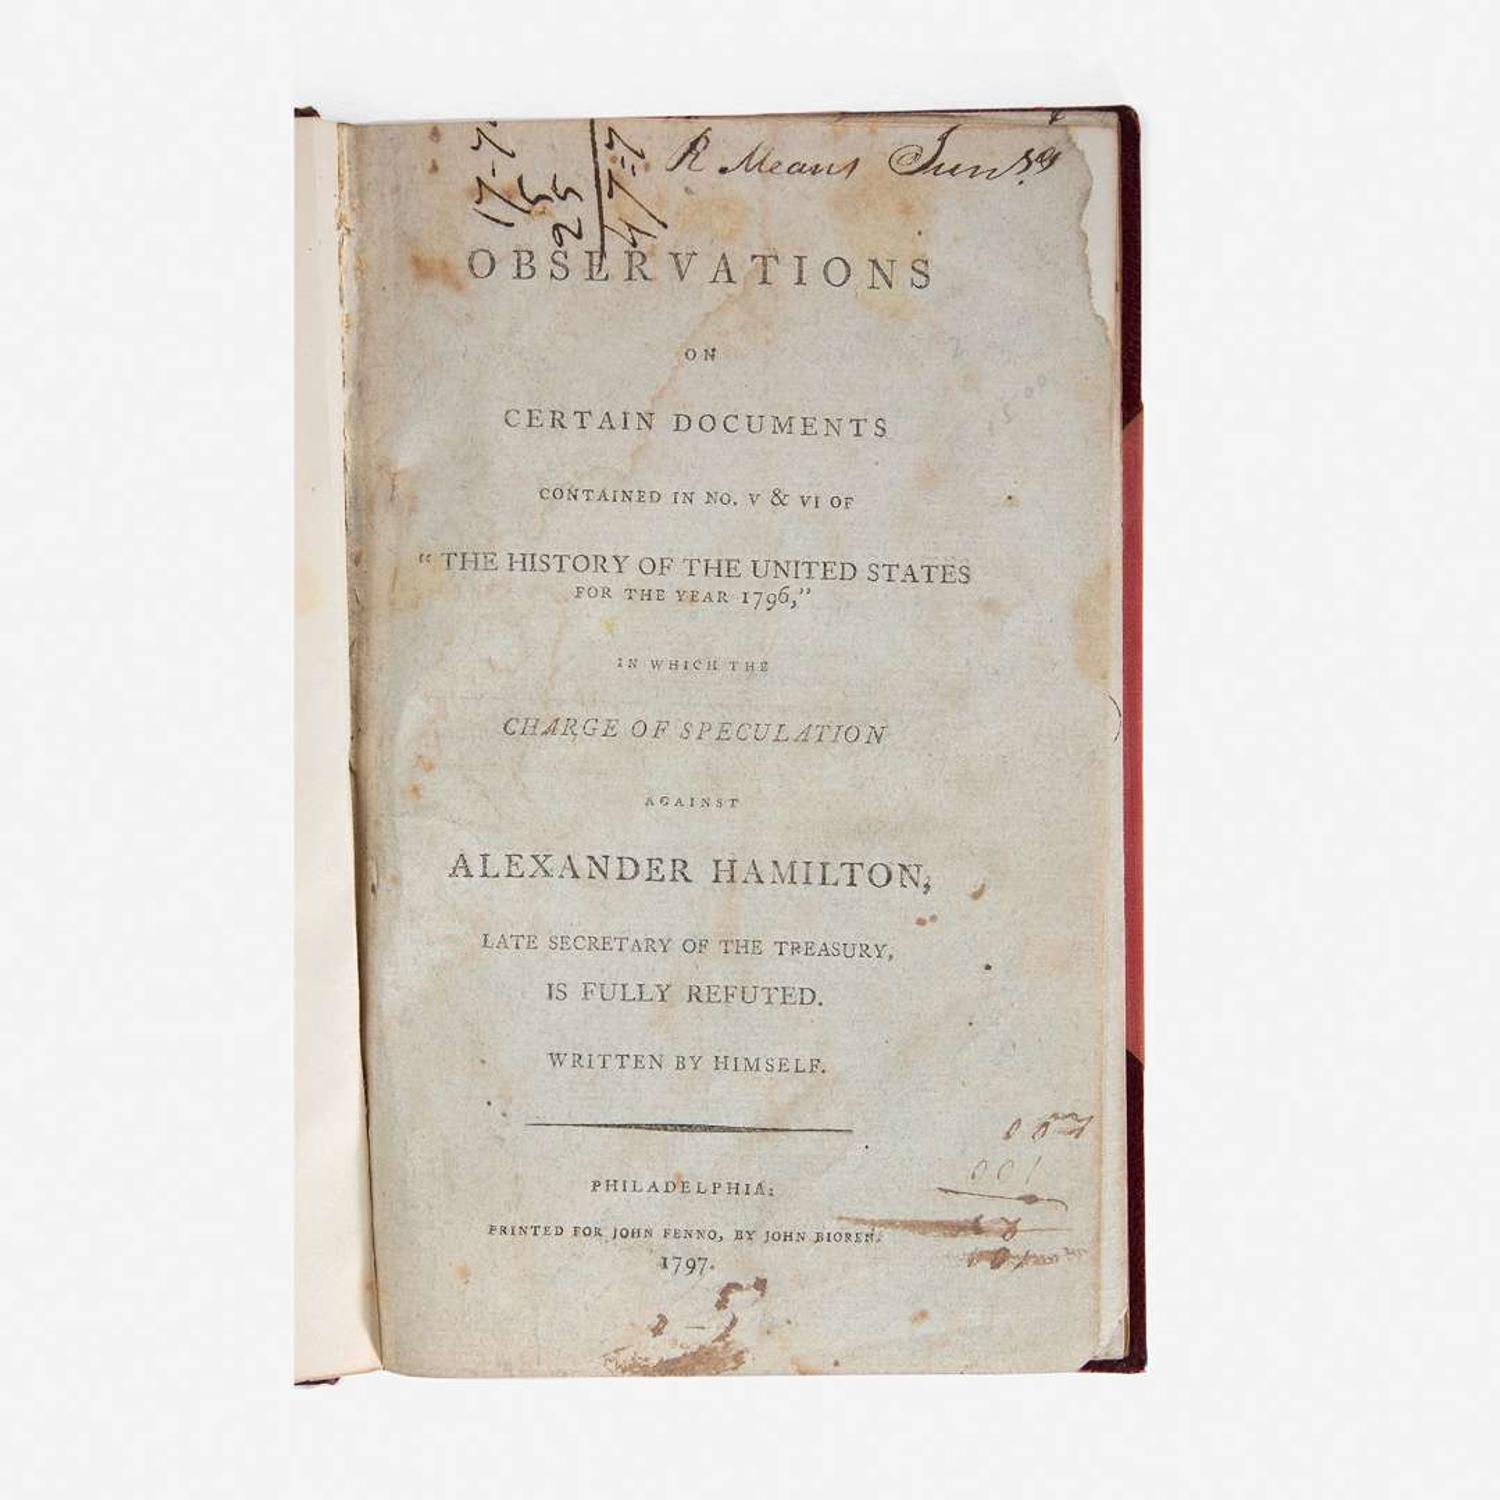 17-7
5
25
47=7
R Means
OBSERVATIONS
ON
CERTAIN DOCUMENTS
CONTAINED IN NO. V & VI OF
“THE HISTORY OF THE UNITED STATES
FOR THE YEAR 1796,”
IN WHICH THE
CHARGE OF SPECULATION
AGAINST
ALEXANDER HAMILTON,
LATE SECRETARY OF THE TREASURY,
IS FULLY REFUTED.
WRITTEN BY HIMSELF.
PHILADELPHIA:
PRINTED FOR JOHN FENNO, BY JOHN BIOREN.
1797.